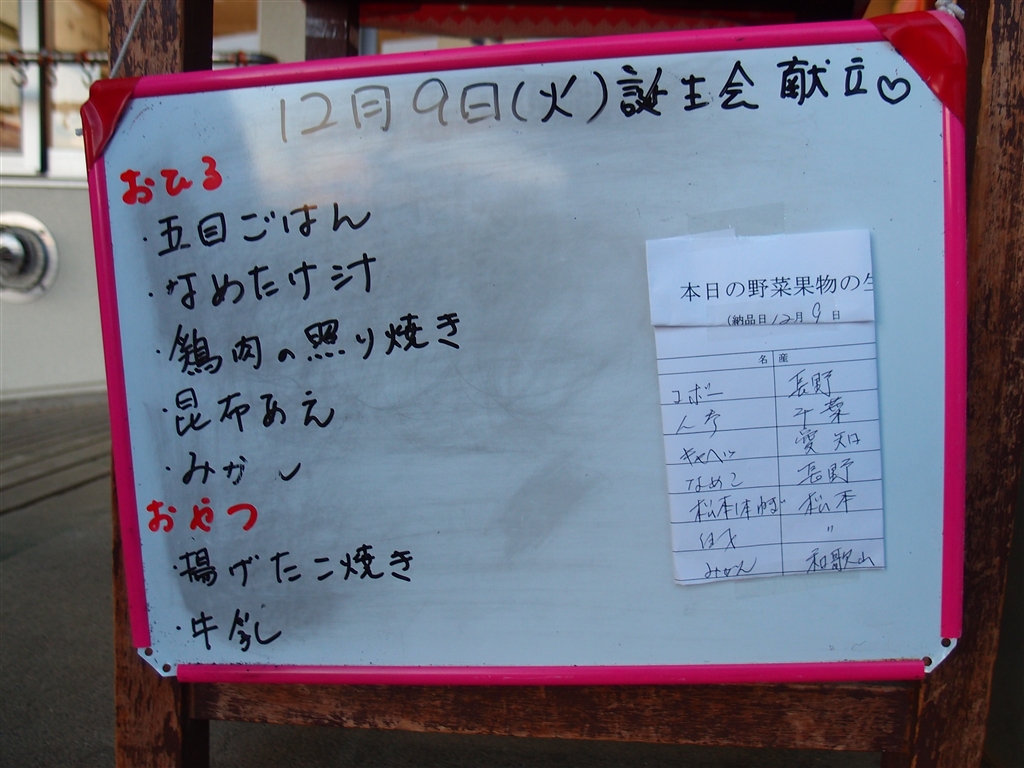 12月9日(火)誕生会 献立♡
おひる
・五目ごはん
・なめたけ汁
・鶏肉の照り焼き
・昆布あえ
・みかん
おやつ
・揚げたこ焼き
・牛乳
本日の野菜果物の
(納品日12月9日
名 産
ゴボー 長野
人参 千葉
キャベツ 愛知
なめこ 長野
松本 〃
みかん 和歌山